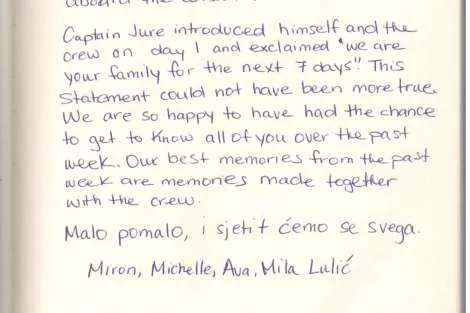 Captain Jure introduced himself and the
crew on day 1 and exclaimed "we are
your family for the next 7 days"! This
Statement could not have been more true.
We are so happy to have had the chance
to get to know all of you over the past
week. Our best memories from the past
week are memories made together
with the crew.
Malo pomalo, i sjetit ćemo se svega.
Miron, Michelle, Ava, Mila Lulić